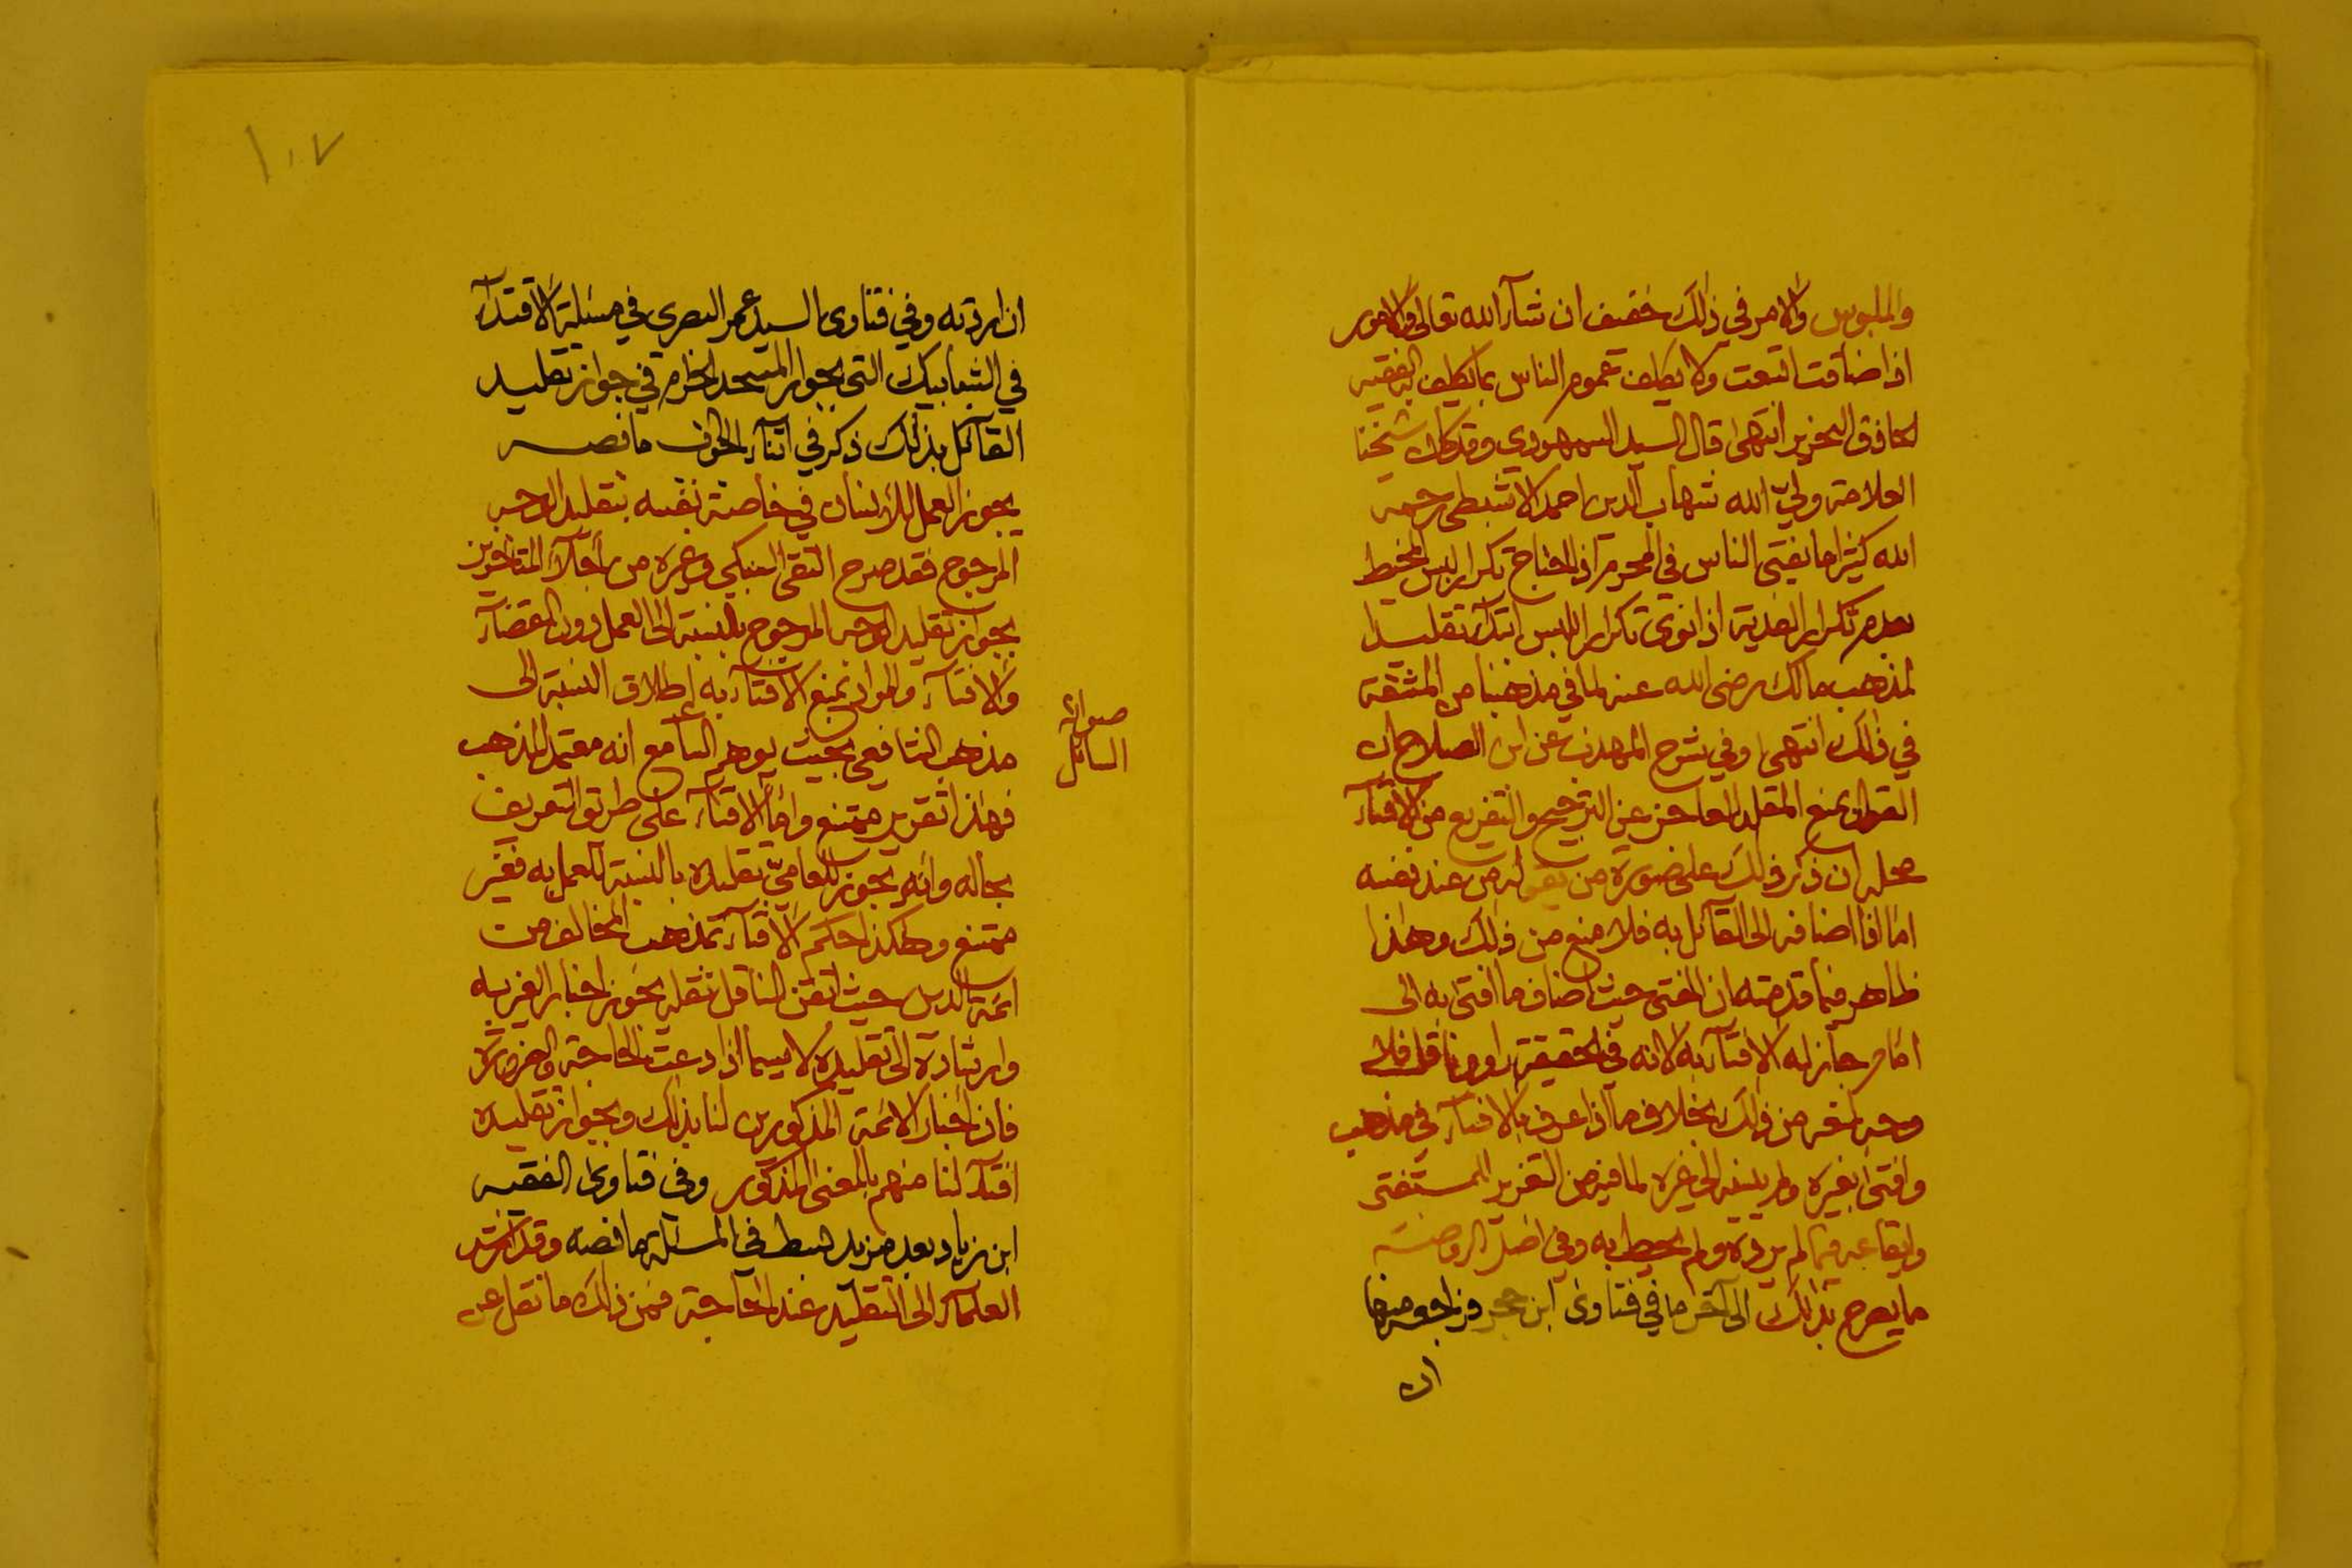 والملبوس والامر في ذلك خفيف ان شآء الله تعالى والامور
اذا ضاقت اتسعت ولا يكلف عموم الناس بما يكلف به الفقيه
الحاذق النحرير انتهى قال السيد السمهودي وقد كان شيخنا
العلامة وليّ الله شهاب الدين احمد الابشيطي رحمه
الله كثيرا ما يفتى الناس في المحرم اذا احتاج تكرار لبس المخيط
بعدم تكرار الفدية اذا نوى تكرار اللبس ابتدآء تقليدا
لمذهب مالك رضى الله عنه لما في مذهبنا من المشقة
في ذلك انتهى وفي شرح المهذب عن ابن الصلاح ان
القول بمنع المقلد العاجز عن الترجيح والتفريع من الافتآء
محله ان ذكر ذلك على صورة من يقوله من عند نفسه
اما اذا اضافه الى القآئل به فلا منع من ذلك وهذا
ظاهر فيما قدمته ان المفتى حيث اضاف ما افتى به الى
امام جاز له الافتآء به لانه في الحقيقة راوى ناقل فلا
وجه لمنعه من ذلك بخلاف ما اذا عرف بالافتآء في مذهب
وافتى بغيره ولم ينسبه الى غيره لما فيه من التغرير للمستفتى
وايقاعه فيما لم يرده ولم يحط به وفي اصل الروضة
ما يصرح بذلك الى آخر ما في فتاوى ابن حجر فراجعه منها
ان
١٠٧
ان اردته وفي فتاوى السيد عمر البصرى في مسئلة الاقتدآء
في الشبابيك التى بجوار المسجد الحرام في جواز تقليد
القآئل بذلك ذكر في اثنآء الجواب ما نصه
يجوز العمل للانسان في خاصة نفسه بتقليد الوجه
المرجوح فقد صرح التقى السبكي وغيره من أجلآء المتأخرين
بجواز تقليد الوجه المرجوح بالنسبة الى العمل دون القضآء
والافتآء والمراد بمنع الافتآء به إطلاق النسبة الى
مذهب الشافعي بحيث يوهم السآمع انه معتمد المذهب
فهذا تغرير ممتنع واما الافتآء على طريق التعريف
بحاله وانه يجوز للعاميّ تقليده بالنسبة للعمل به فغير
ممتنع وهكذا حكم الافتآء بمذهب المخالف من
ائمة الدين حيث اتقن الناقل نقله يجوز اخبار الغير به
وارشاده الى تقليده لا سيما اذا دعت الحاجة والضرورة
فان اخبار الائمة المذكورين لنا بذلك وبجواز تقليده
افتآء لنا منهم بالمعنى المذكور وفى فتاوى الفقيه
ابن زياد بعد مزيد بسط في المسئلة ما نصه وقد ارشد
العلمآء الى التقليد عند الحاجة فمن ذلك ما نقل عن
صوابه
السائل